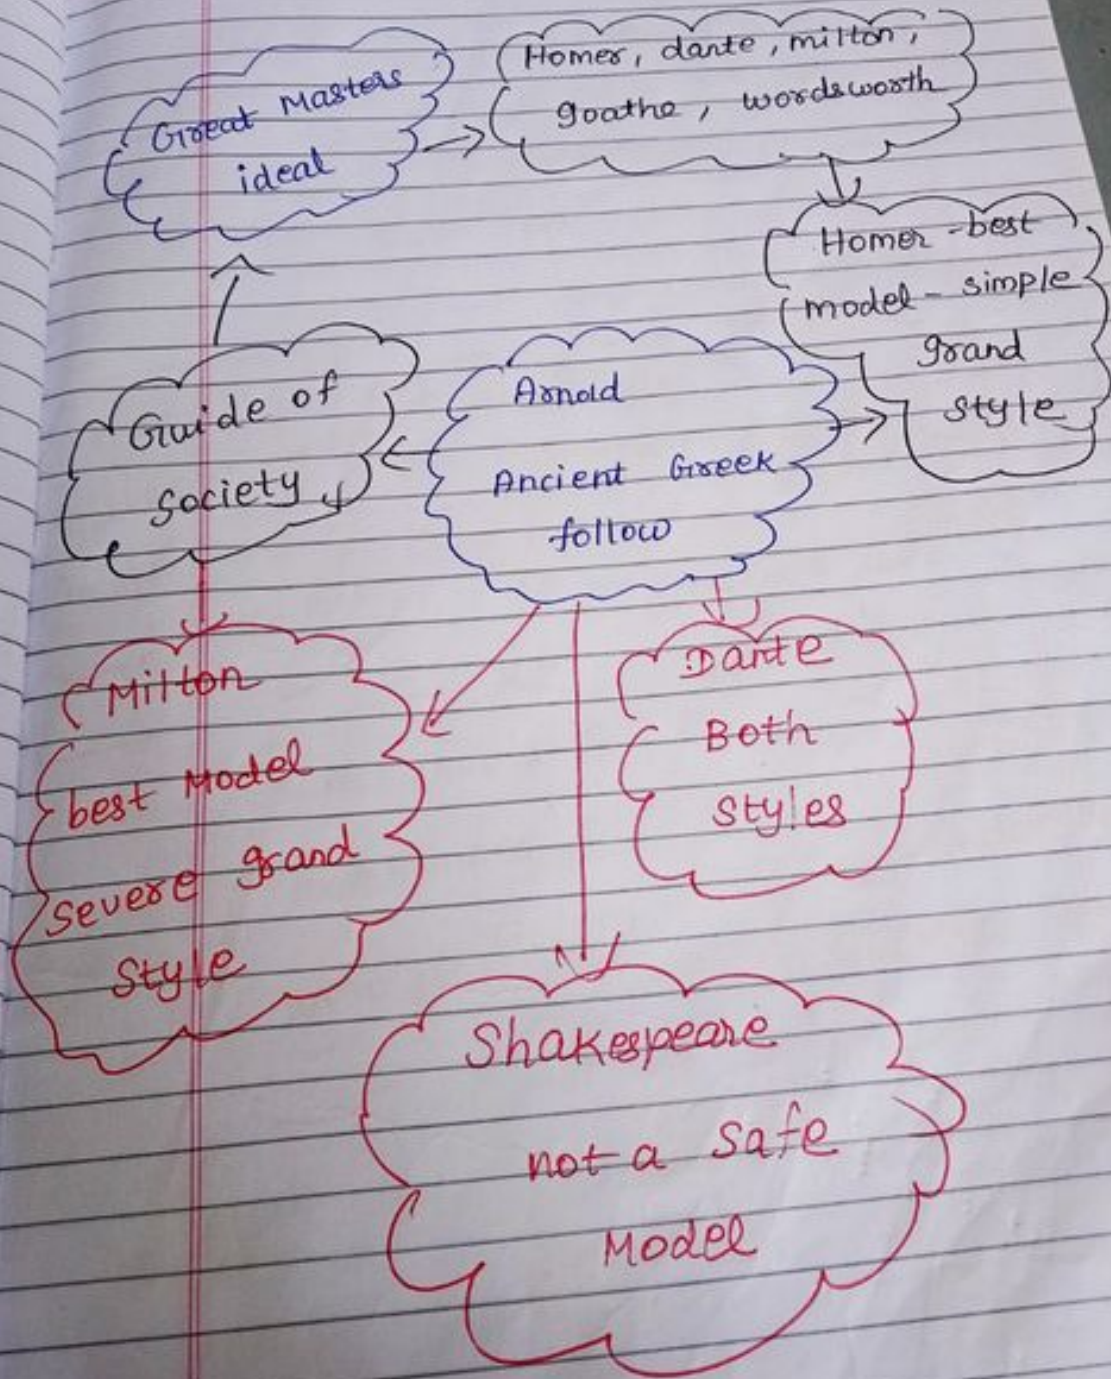 Great Masters
ideal
Homer, dante, milton,
goathe, wordsworth
Homer - best
model - simple
grand
style
Guide of
society
Arnold
Ancient Greek
follow
Milton
best Model
severe grand
Style
Dante
Both
Styles
Shakespeare
not a safe
Model